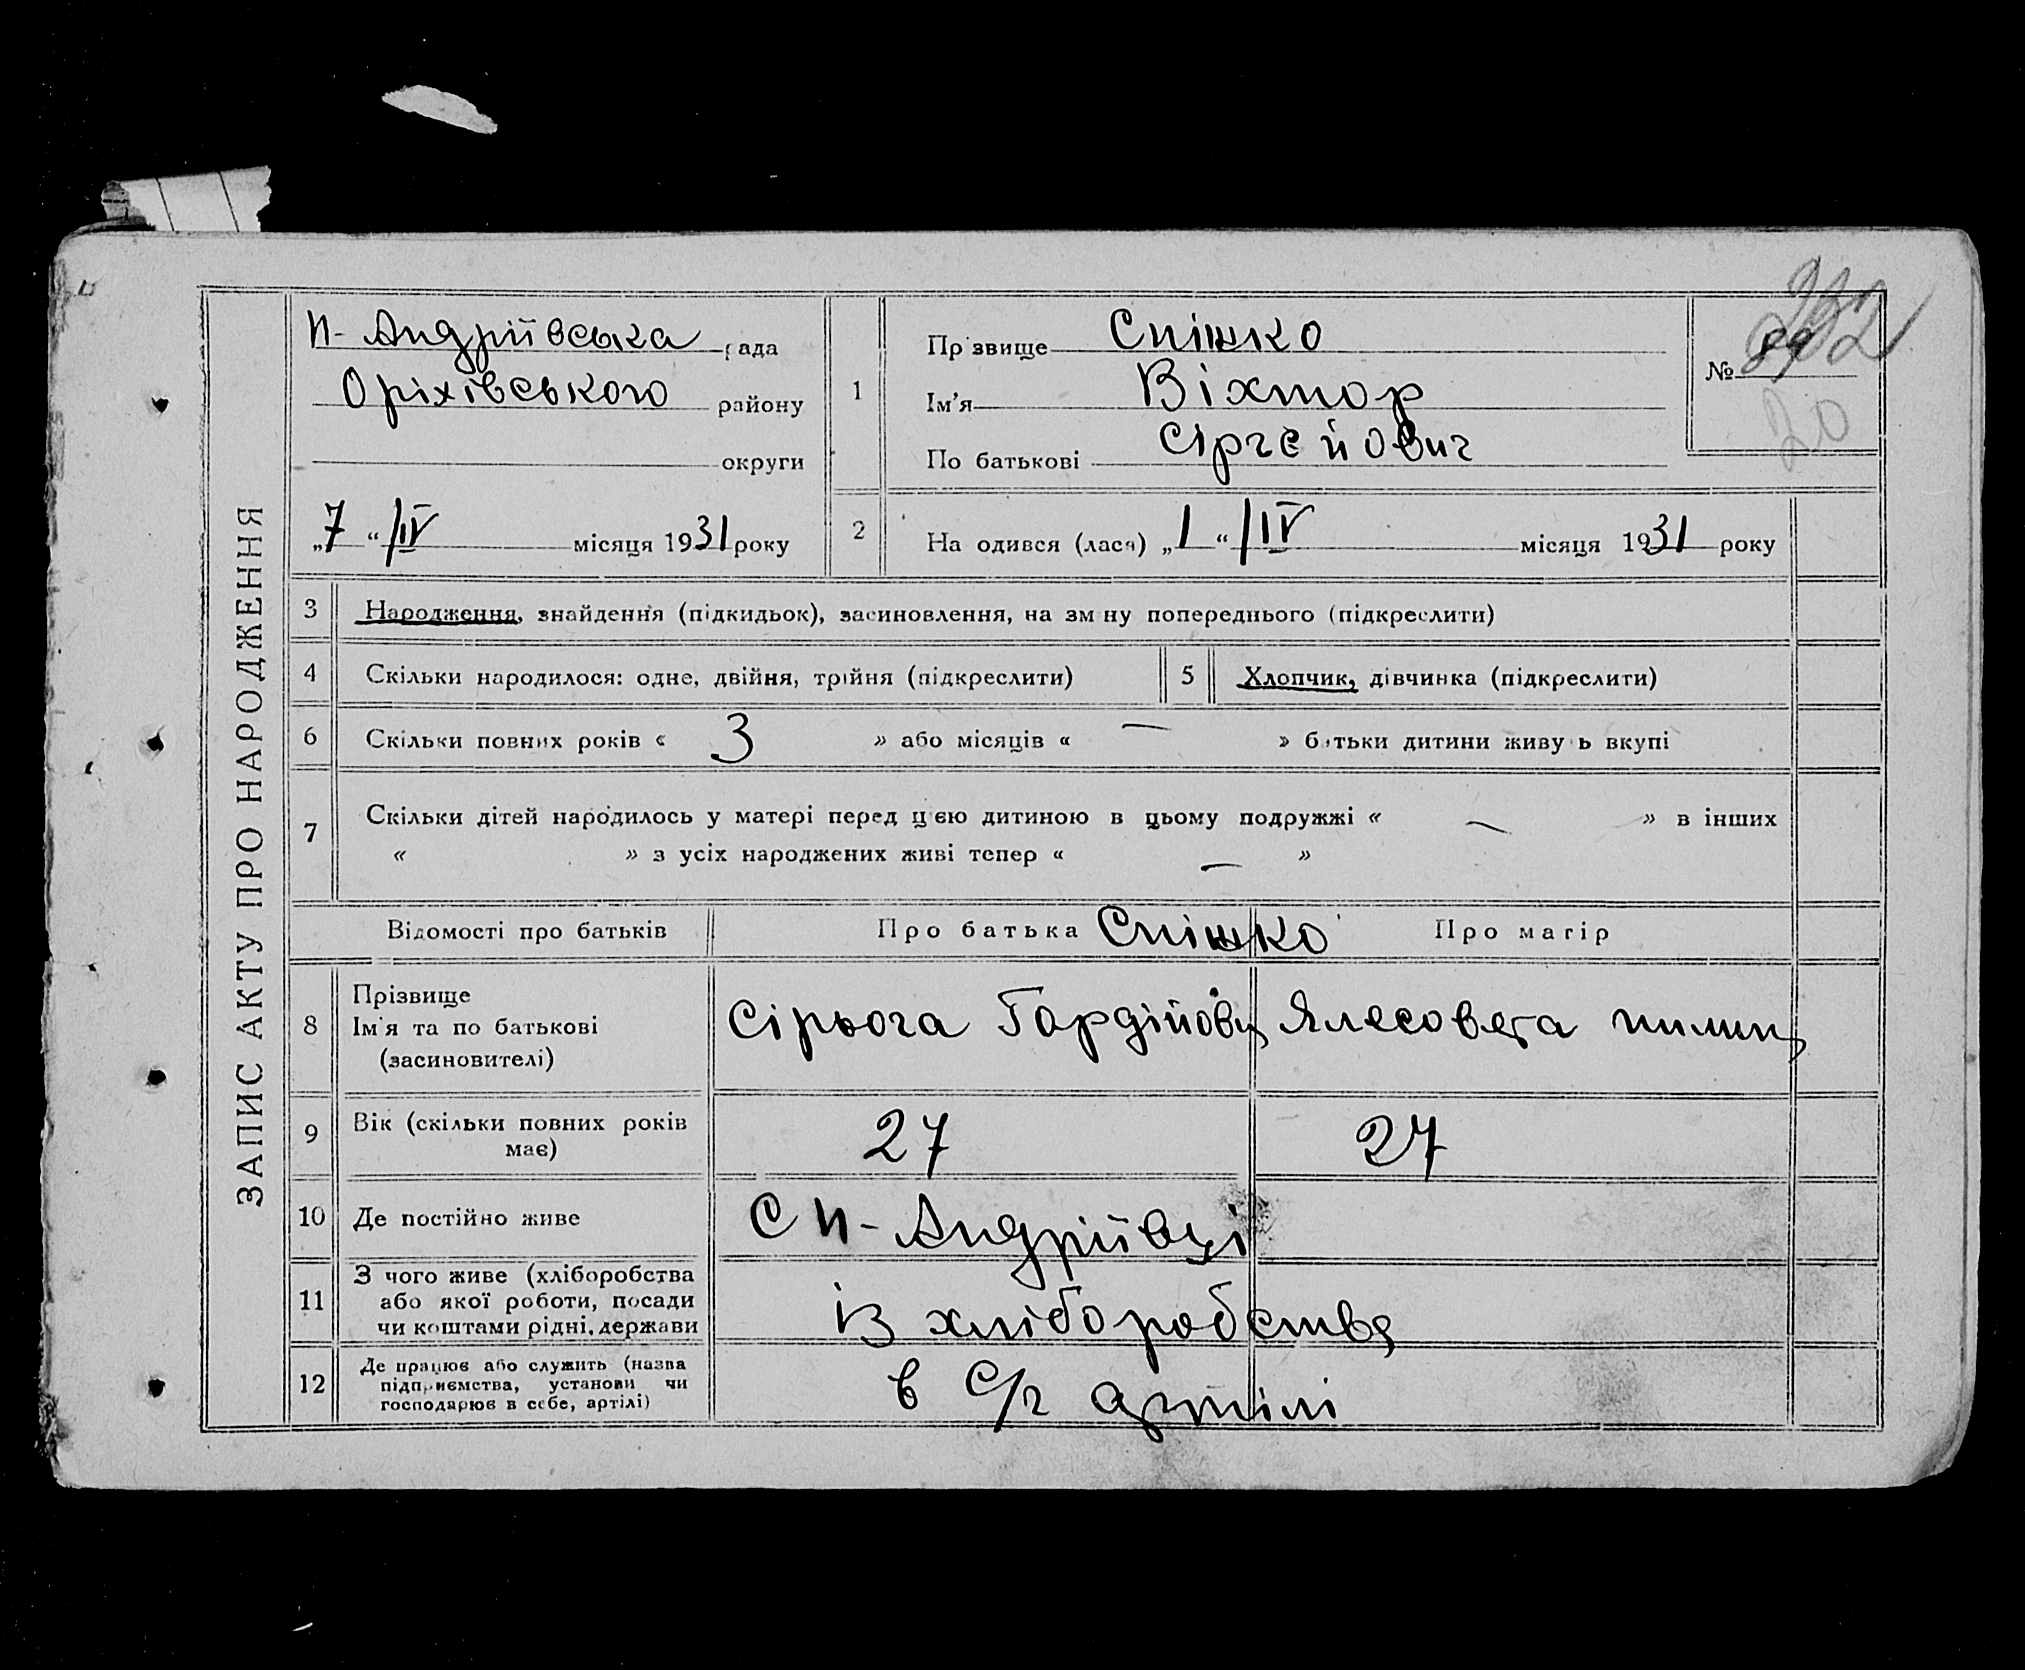 ЗАПИС АКТУ ПРО НАРОДЖЕННЯ
Н-Андріївська рада
Оріхівського району
округи
„7“ /IV місяця 1931 року
1
Прізвище Спішко
Ім'я Віхтор
По батькові Сіргєйович
№
232
20
2
На одився (лася) „1“ /IV місяця 1931 року
3 Народження, знайдення (підкидьок), засиновлення, на зм ну попереднього (підкреслити)
4 Скільки народилося: одне, двійня, трійня (підкреслити) 5 Хлопчик, дівчинка (підкреслити)
6 Скільки повних років « 3 » або місяців « — » батьки дитини живу ь вкупі
7 Скільки дітей народилось у матері перед цією дитиною в цьому подружжі « — » в інших
« » з усіх народжених живі тепер « — »
Відомості про батьків Про батька Спішко Про матір
8 Прізвище
Ім'я та по батькові
(засиновителі)
Сірьога Гордійови Ялесовета пилип
9 Вік (скільки повних років
має)
27 27
10 Де постійно живе С Н-Андріївці
11 З чого живе (хліборобства
або якої роботи, посади
чи коштами рідні, держави
із хліборобства
12 Де працює або служить (назва
підприємства, установи чи
господарює в себе, артілі)
в С/г артілі